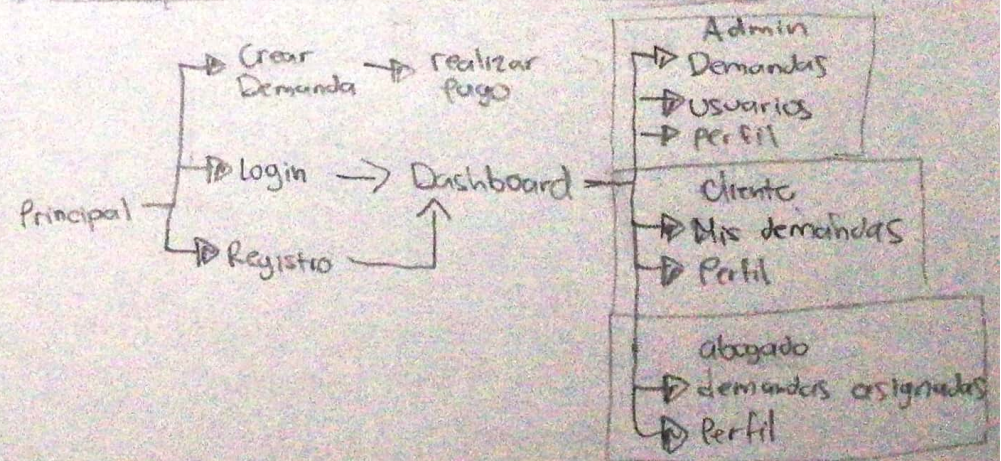 Principal
Crear
Demanda
realizar
pago
Login
Dashboard
Registro
Admin
Demandas
usuarios
perfil
cliente
Mis demandas
Perfil
abogado
demandas asignadas
Perfil